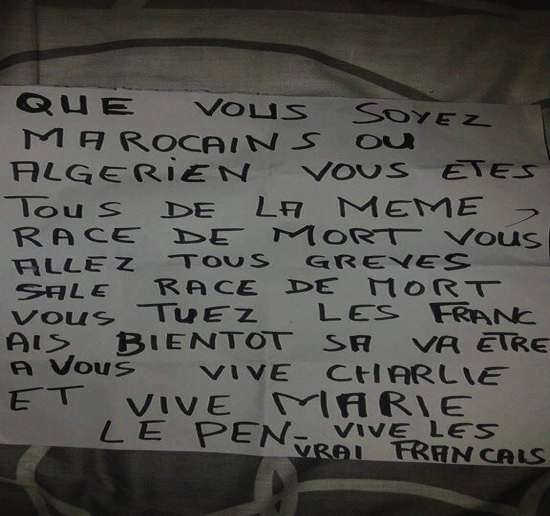 QUE VOUS SOYEZ
MAROCAINS OU
ALGERIEN VOUS ETES
TOUS DE LA MEME
RACE DE MORT VOUS
ALLEZ TOUS GREVES
SALE RACE DE MORT
VOUS TUEZ LES FRANC
AIS BIENTOT SA VA ETRE
A VOUS VIVE CHARLIE
ET VIVE MARIE
LE PEN- VIVE LES
VRAI FRANCAIS